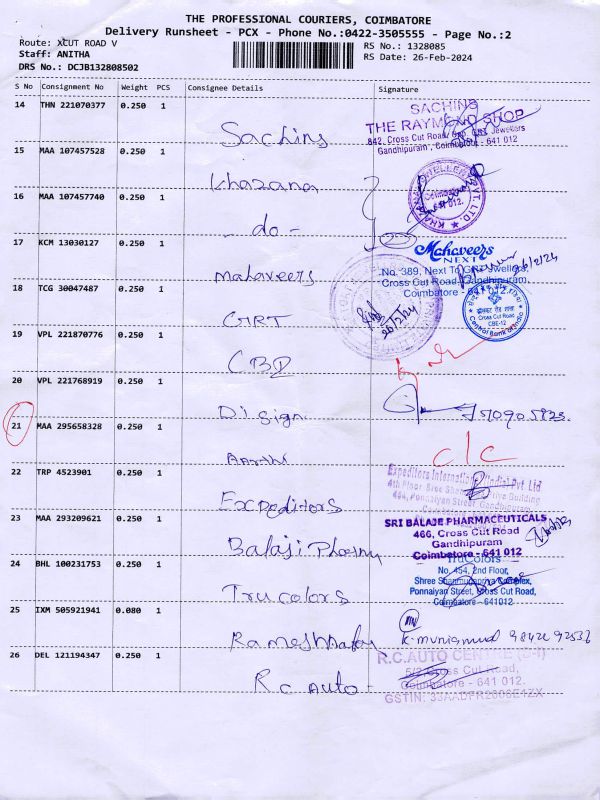 THE PROFESSIONAL COURIERS, COIMBATORE
Delivery Runsheet - PCX - Phone No.:0422-3505555 - Page No.:2
Route: XCUT ROAD V
RS No.: 1328085
Staff: ANITHA
RS Date: 26-Feb-2024
DRS No.: DCJB132808502
S No Consignment No Weight PCS Consignee Details Signature
14 THN 221070377 0.250 1
Sachins
SACHINS
THE RAYMOND SHOP
842, Cross Cut Road, Jewellers
Gandhipuram, Coimbatore - 641 012
15 MAA 107457528 0.250 1
Khazana
16 MAA 107457740 0.250 1
- do -
17 KCM 13030127 0.250 1
Mahaveers
Mahaveers
NEXT
No. 389, Next To GRT Jwellers,
Cross Cut Road, Gandhipuram,
Coimbatore - 641 012.
26/2/24
18 TCG 30047487 0.250 1
GRT
26/2/24
Central Bank of India
Cross Cut Road
CBE-12
19 VPL 221870776 0.250 1
CBI
20 VPL 221768919 0.250 1
Disign
21 MAA 295658328 0.250 1
C/C
22 TRP 4523901 0.250 1
Expeditors
Expeditors International (India) Pvt. Ltd
23 MAA 293209621 0.250 1
Balaji Pharmy
SRI BALAJE PHARMACEUTICALS
466, Cross Cut Road
Gandhipuram
Coimbatore - 641 012
24 BHL 100231753 0.250 1
Trucolors
TruColors
No. 454, 2nd Floor,
Shree Shanmugapriya Complex,
Ponnaiyan Street, Cross Cut Road,
Coimbatore - 641012
25 IXM 505921941 0.080 1
26 DEL 121194347 0.250 1
R.C Auto -
R.C.AUTO CENTRE
Cross Cut Road,
Coimbatore - 641 012.